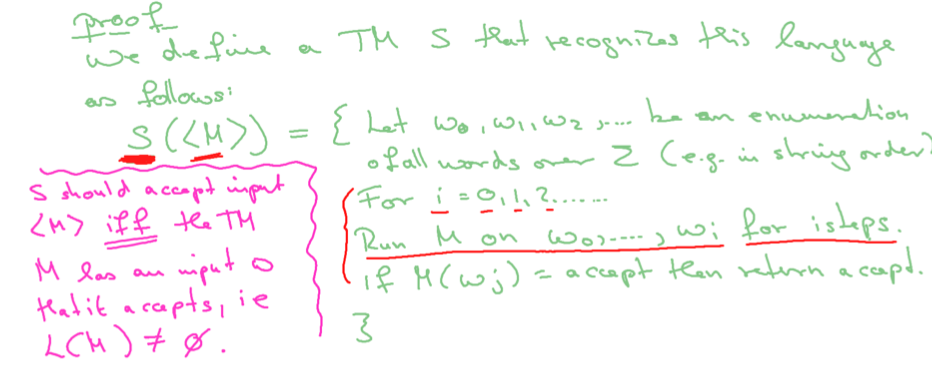 proof
We define a TM S that recognizes this language
as follows:
S(<M>) = { Let w₀, w₁, w₂, .... be an enumeration
of all words over Σ (e.g. in string order)
For i = 0, 1, 2.......
Run M on w₀, ...., wᵢ for i steps.
if M(wⱼ) = accept then return accept.
}
S should accept input
<M> iff the TM
M has an input
that it accepts, i e
L(M) ≠ ∅.